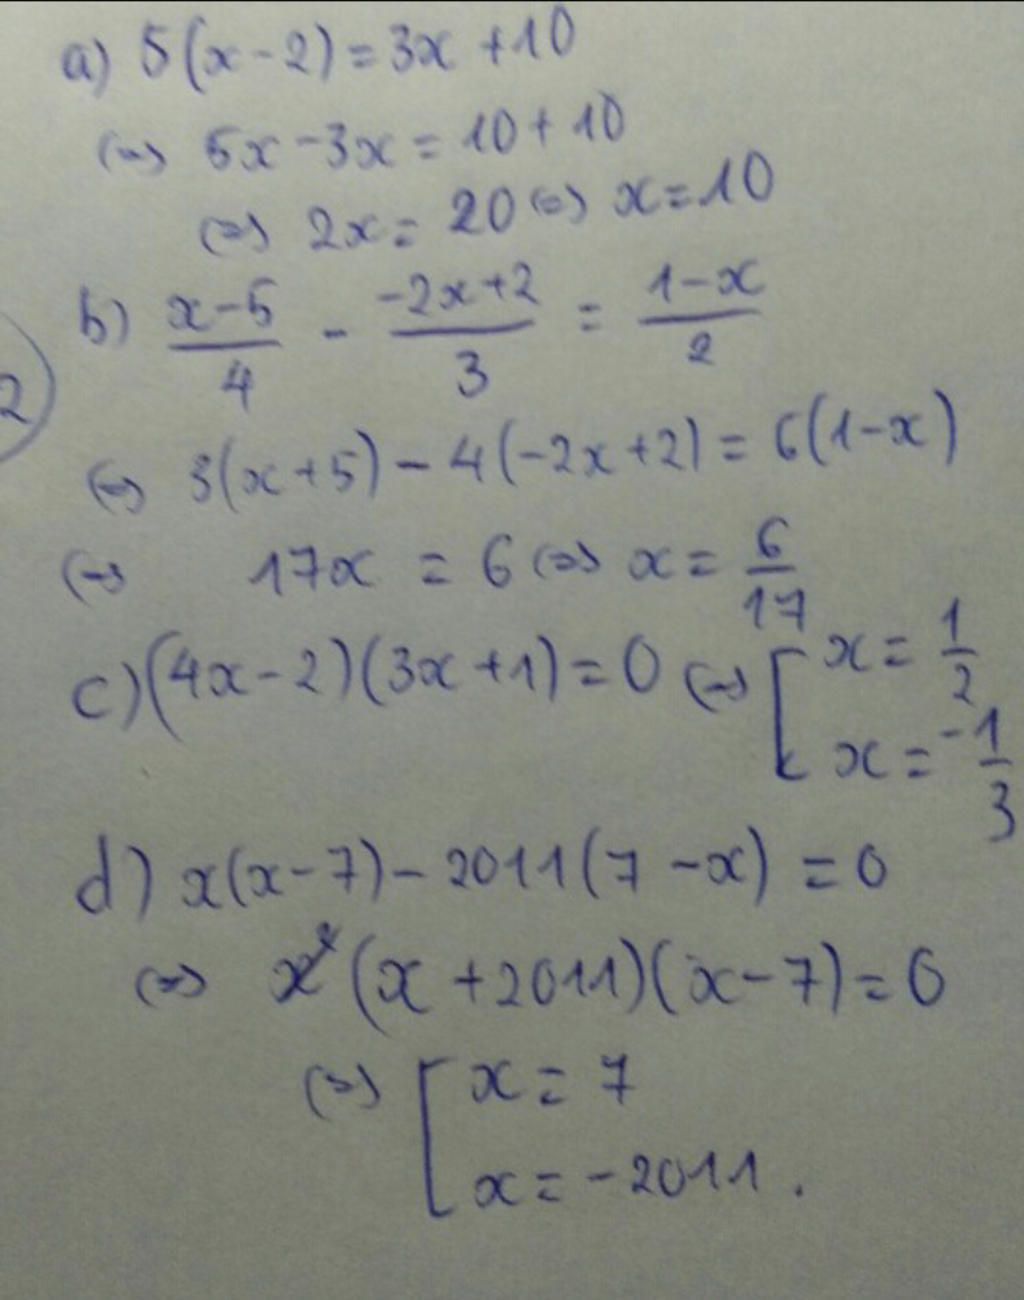 a) 5(x-2)=3x+10
(=) 5x-3x=10+10
(=) 2x=20 (=) x=10
b) \frac{x-5}{4} - \frac{-2x+2}{3} = \frac{1-x}{2}
2
(=) 3(x+5)-4(-2x+2)=6(1-x)
(=) 17x=6 (=) x=\frac{6}{17}
c) (4x-2)(3x+1)=0 (=) [ x=\frac{1}{2}
x=-\frac{1}{3}
d) x(x-7)-2011(7-x)=0
(=) (x+2011)(x-7)=0
(=) [ x=7
x=-2011.